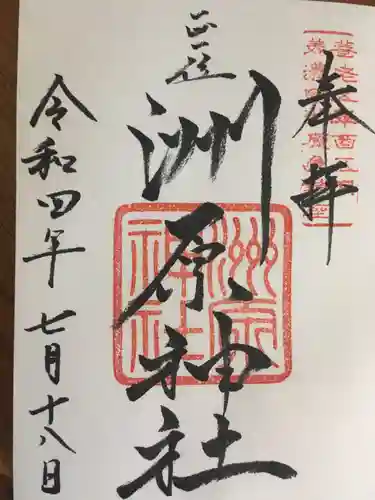 奉拝
正一位
洲原神社
洲原
神社
令和四年 七月十八日